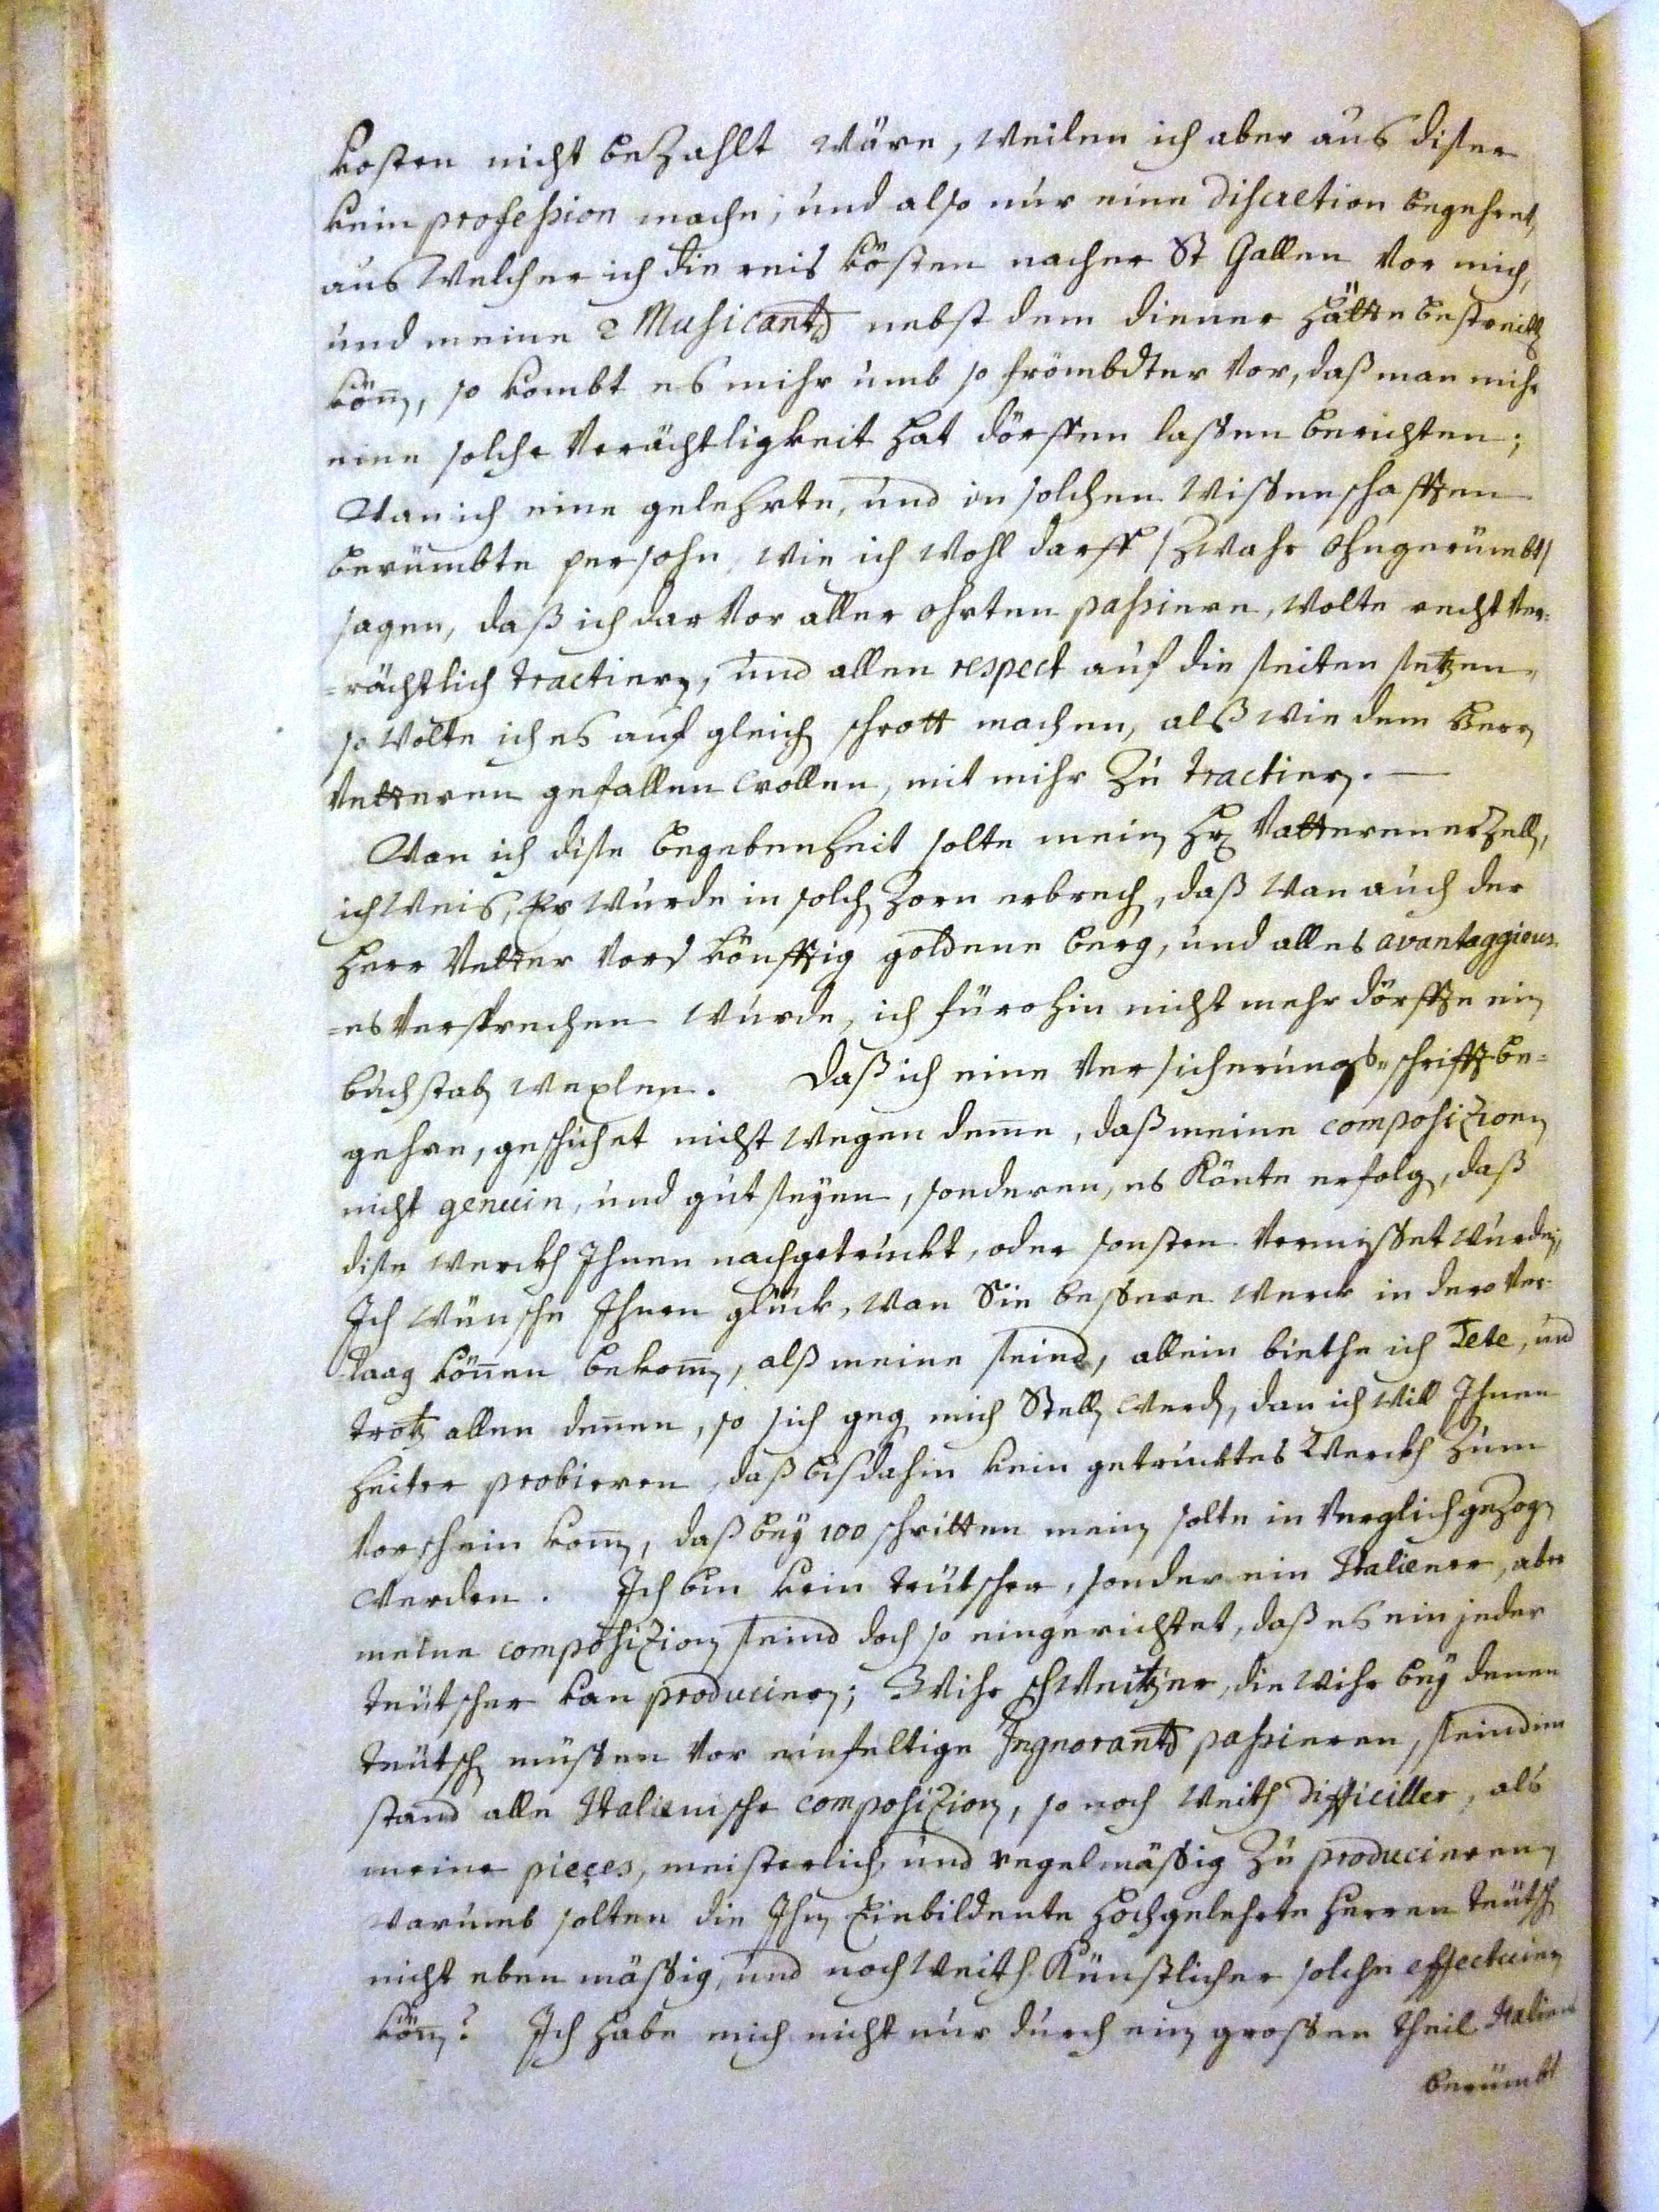 kosten nicht bezahlt wäre, weilen ich aber aus diser
kein profeßion mache, und also nur eine discretion begehret,
aus welcher ich die reis kösten nacher St Gallen vor mich,
und meine 2 Musicanten nebst dem diener hätte bestreiten
können, so kombt es mihr umb so frömbdter vor, daß man mihr
eine solche verächtligkeit hat dörffen lassen berichten;
Wan ich eine gelehrte, und in solchen wissenschafften
berümbte persohn, wie ich wohl darff /zwahr ohngerümbt/
sagen, daß ich darvor aller ohrten paßiere, wolte recht ver=
=rächtlich tractieren, und allen respect auf die seiten setzen,
so wolte ich es auf gleich schrott machen, alß wie dem Herren
Vetteren gefallen wollen, mit mihr zu tractieren.
Wan ich dise begebenheit solte meinen Hr Vatteren erzellen,
ich weis, Er wurde in solchen zorn erbrechen, daß wan auch der
Herr Vetter vord könfftig goldene berg, und alles avantaggieus
=es versprechen wurde, ich fürohin nicht mehr dörffte ein
buchstaben wexlen. Daß ich eine versicherungs=schrifft be=
gehre, geschichet nicht wegen deme, daß meine composizionen
nicht genuin, und gut seyen, sonderen, es könte erfolgen, daß
dise werckh Ihnen nachgetruckt, oder sonsten vernisset wurden,
Ich wünsche Ihnen glück, wan Sie bessere werck in dero ver=
=laag können bekommen, alß meine seind, allein biethe ich Tete, und
trotz allen denen, so sich gegen mich Stellen werden, dan ich will Ihnen
heiter probieren, daß bis dahin kein getrucktes Werckh zum
vorschein kommen, daß bey 100 schritten meinen solte in verglich gezogen
werden. Ich bin kein teütscher, sonder ein Italiener, aber
meine composizionen seind doch so eingerichtet, daß es ein jeder
teütscher kan producieren; Wihr schweitzer, die wihr bey denen
teütschen müssen vor einfeltige Ingnoranten paßieren, seind im
stand alle Italienische composizionen, so noch weith difficiller, als
meine pieçes, meisterlich, und regelmässig zu producieren,
warumb solten die Ihnen Einbildente hochgelehrte Herren teütschen
nicht eben mässig, und noch weith künstlicher solche effectuieren
können? Ich habe mich nicht nur durch ein grossen theil Italiens
berümbt